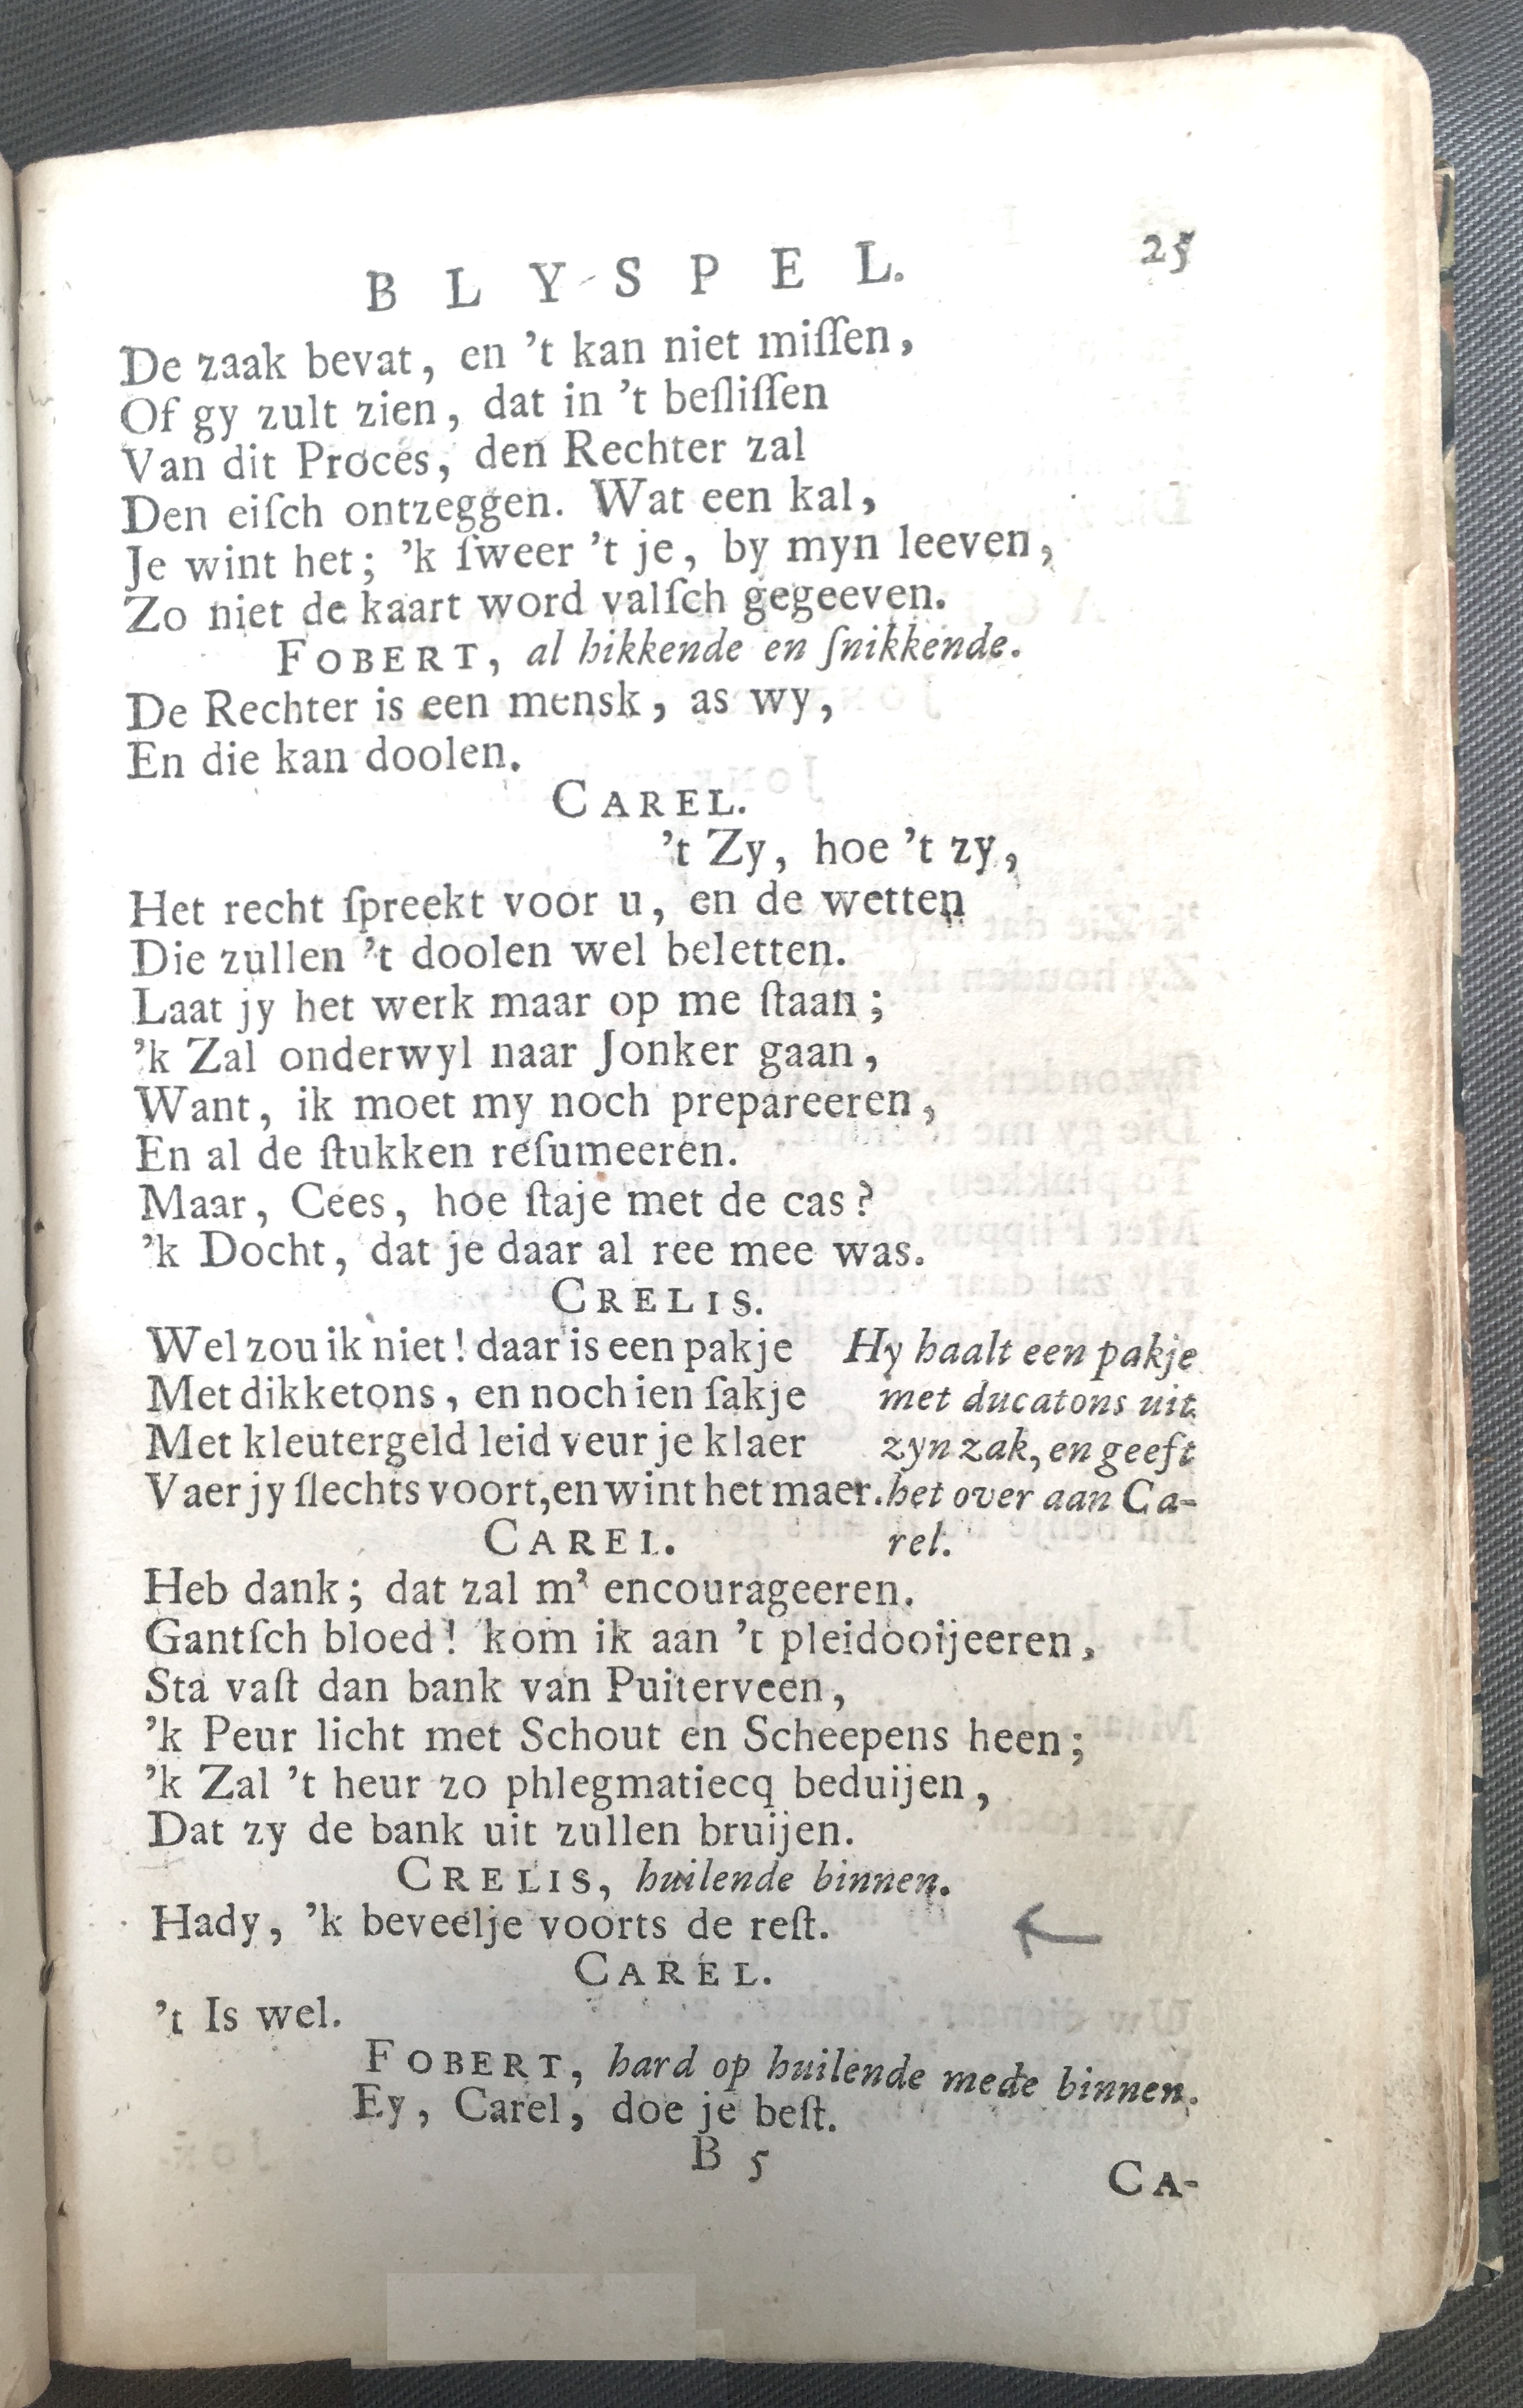 BLYSPEL. 25
De zaak bevat, en 't kan niet miſſen,
Of gy zult zien, dat in 't beſliſſen
Van dit Procés, den Rechter zal
Den eiſch ontzeggen. Wat een kal,
Je wint het; 'k ſweer 't je, by myn leeven,
Zo niet de kaart word valſch gegeeven.
FOBERT, al hikkende en ſnikkende.
De Rechter is een mensk, as wy,
En die kan doolen.
CAREL.
't Zy, hoe 't zy,
Het recht ſpreekt voor u, en de wetten
Die zullen 't doolen wel beletten.
Laat jy het werk maar op me ſtaan;
'k Zal onderwyl naar Jonker gaan,
Want, ik moet my noch prepareeren,
En al de ſtukken reſumeeren.
Maar, Cees, hoe ſtaje met de cas?
'k Docht, dat je daar al ree mee was.
CRELIS.
Wel zou ik niet! daar is een pakje Hy haalt een pakje
Met dikketons, en noch ien ſakje met ducatons uit
Met kleutergeld leid veur je klaer zyn zak, en geeft
Vaer jy ſlechts voort, en wint het maer. het over aan Ca-
CAREL. rel.
Heb dank; dat zal m' encourageeren.
Gantſch bloed! kom ik aan 't pleidooijeeren,
Sta vaſt dan bank van Puiterveen,
'k Peur licht met Schout en Scheepens heen;
'k Zal 't heur zo phlegmatiecq beduijen,
Dat zy de bank uit zullen bruijen.
CRELIS, huilende binnen.
Hady, 'k beveelje voorts de reſt.
CAREL.
't Is wel.
FOBERT, hard op huilende mede binnen.
Ey, Carel, doe je beſt.
B 5
CA-